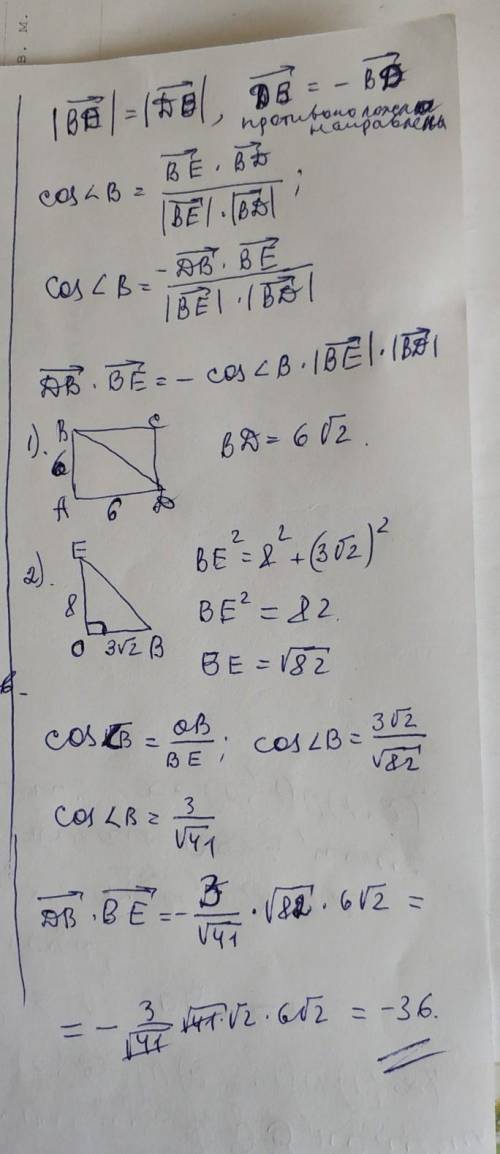 В. М.
|BD⃗| = |DB⃗|, DB⃗ = - BD⃗
противоположно
направлены
cos∠B = (BE⃗ · BD⃗) / (|BE⃗| · |BD⃗|) ;
cos∠B = (-DB⃗ · BE⃗) / (|BE⃗| · |BD⃗|)
DB⃗ · BE⃗ = - cos∠B · |BE⃗| · |BD⃗|
1). B C A D 6 6 BD = 6√2.
2). E 8 O 3√2 B
BE² = 8² + (3√2)²
BE² = 82.
BE = √82
cos∠B = OB/BE ; cos∠B = 3√2/√82
cos∠B = 3/√41
DB⃗ · BE⃗ = - 3/√41 · √82 · 6√2 =
= - 3/√41 √41 · √2 · 6√2 = -36.